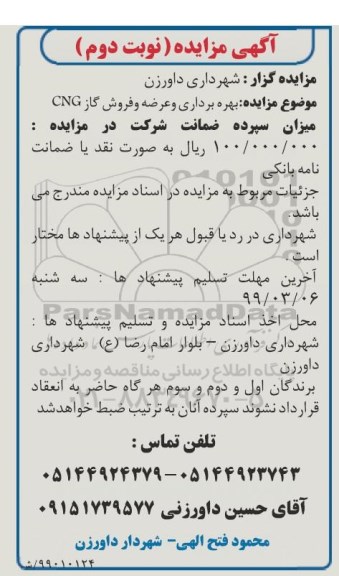 آگهی مزایده (نوبت دوم)
مزایده گزار : شهرداری داورزن
موضوع مزایده:بهره برداری وعرضه وفروش گاز CNG
میزان سپرده ضمانت شرکت در مزایده :
۱۰۰/۰۰۰/۰۰۰ ریال به صورت نقد یا ضمانت
نامه بانکی
جزئیات مربوط به مزایده در اسناد مزایده مندرج می
باشد.
شهرداری در رد یا قبول هر یک از پیشنهاد ها مختار
است .
آخرین مهلت تسلیم پیشنهاد ها : سه شنبه
۹۹/۰۳/۰۶
ParsNamadData
محل اخذ اسناد مزایده و تسلیم پیشنهاد ها :
شهرداری داورزن – بلوار امام رضا (ع) . شهرداری
داورزن
پایگاه اطلاع رسانی مناقصه و مزایده
برندگان اول و دوم و سوم هر گاه حاضر به انعقاد
قرارداد نشوند سپرده آنان به ترتیب ضبط خواهدشد
تلفن تماس :
۰۵۱۴۴۹۲۳۷۴۳-۰۵۱۴۴۹۲۴۳۷۹
آقای حسین داورزنی ۰۹۱۵۱۷۳۹۵۷۷
محمود فتح الهی- شهردار داورزن
۹۹/۰۱۰۱۲۴/ش